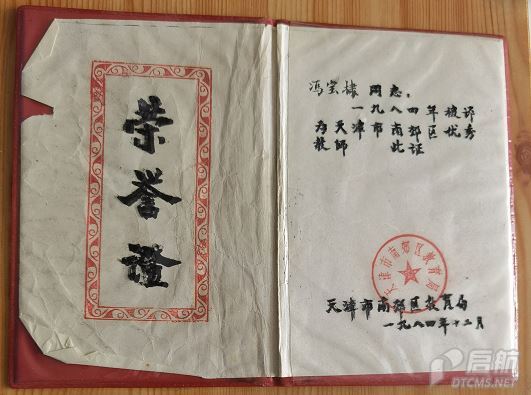 荣誉證
冯宝棣 同志：
一九八四年被评
为天津市南郊区优秀
教师 此证
天津市南郊区教育局
天津市南郊区教育局
一九八四年十二月
启航
DTCMS.NET